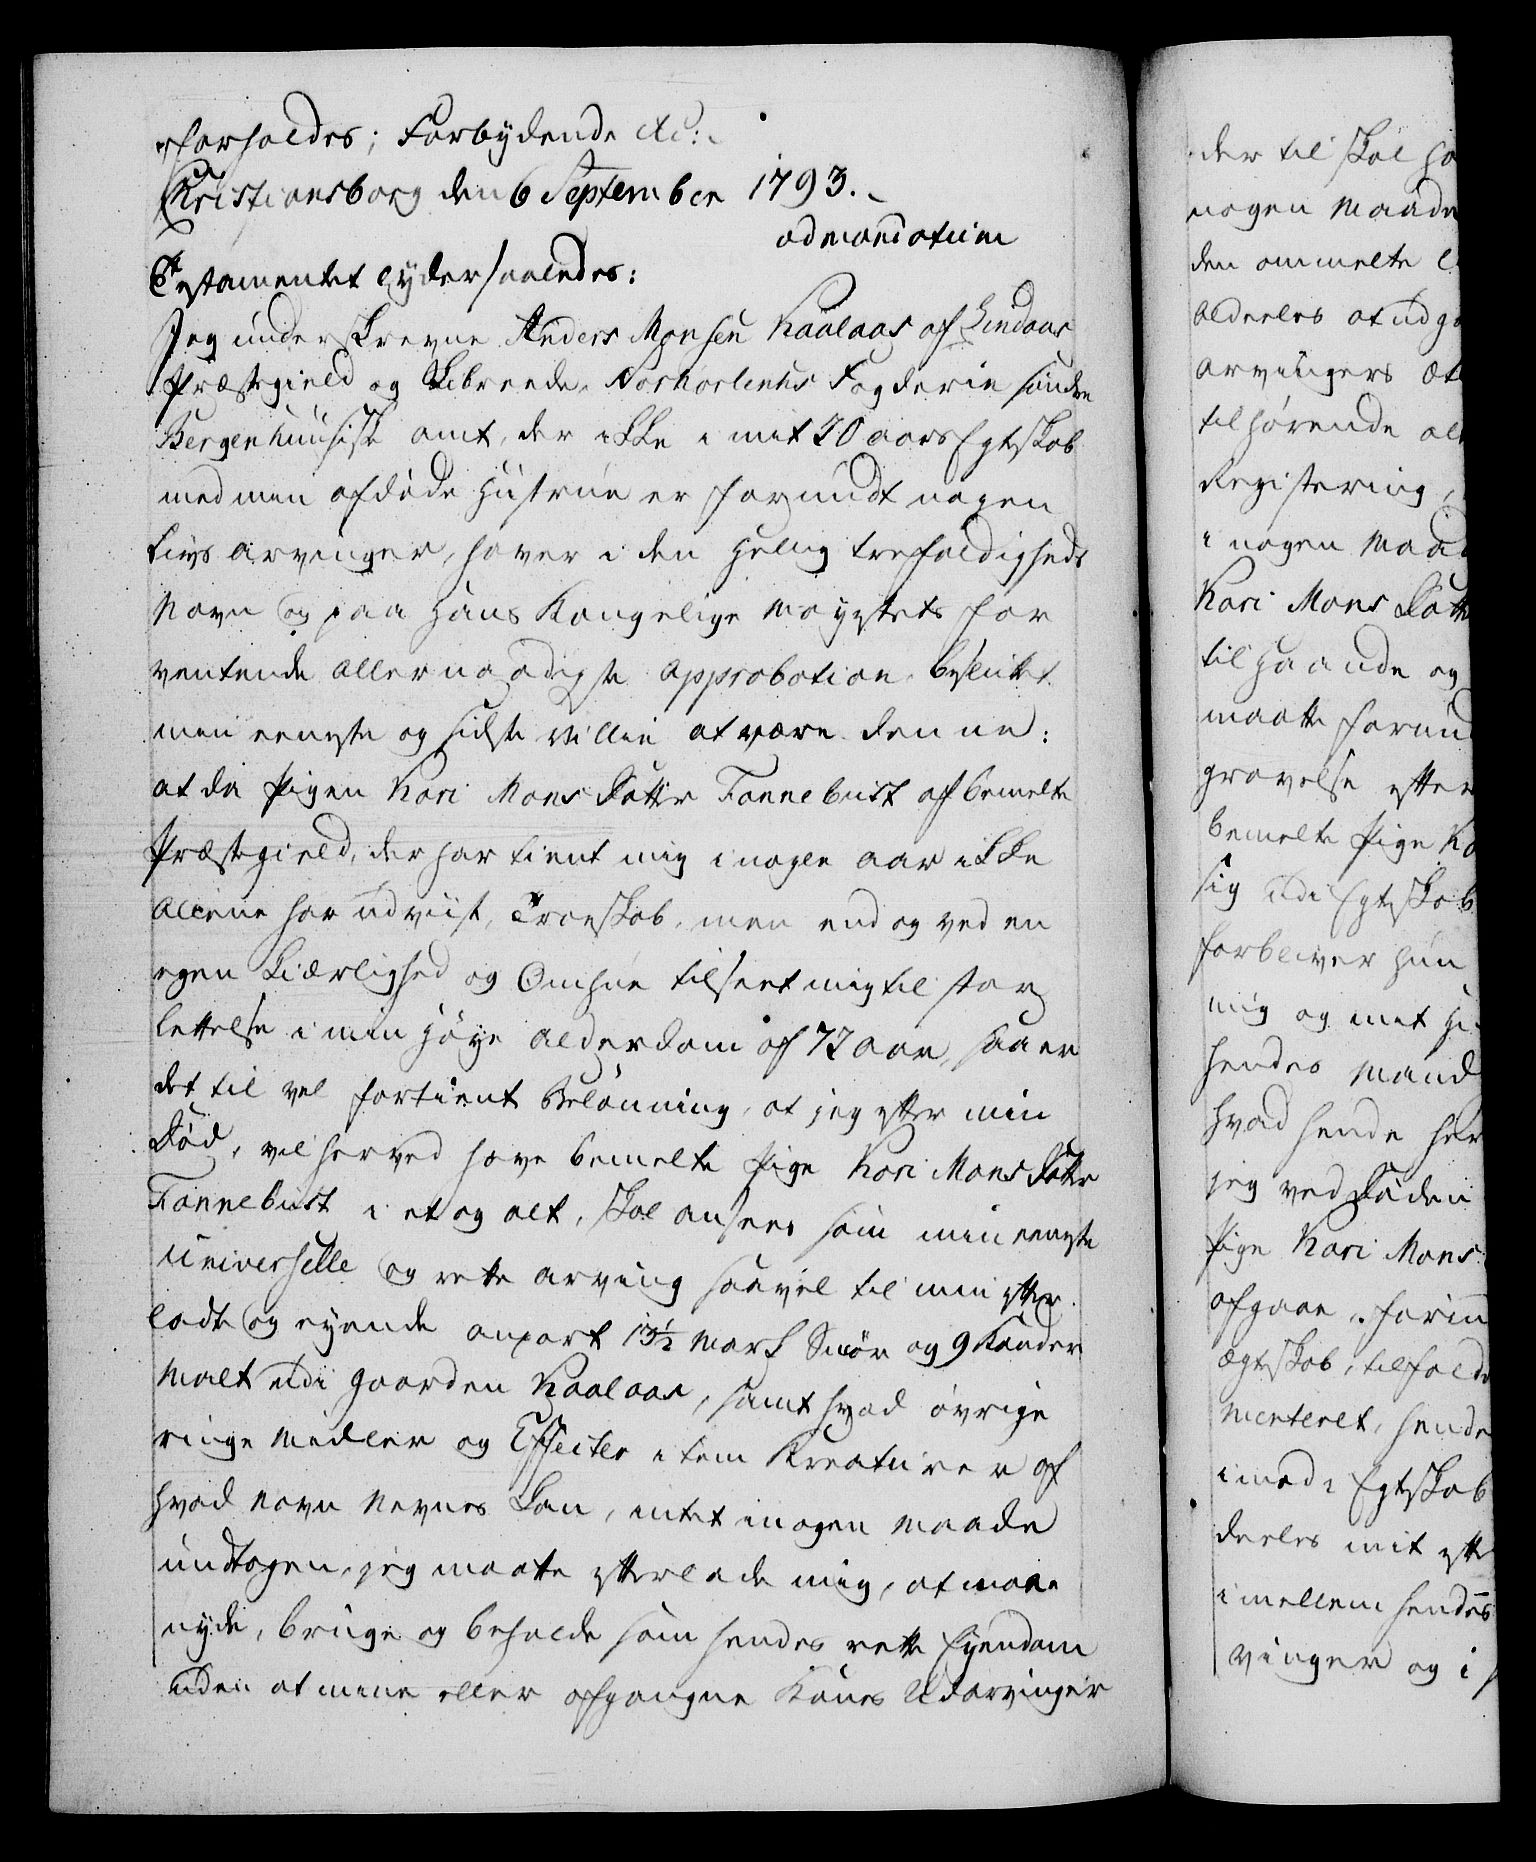 forholdes; Forbydende etc:
Christiansborg den 6 September 1793.
ad mandatum
Testamentet lyder saaledes:
Jeg underskrevne Anders Monsen Kaalaas af Lindaas
Præstegield og Skibreede, Norhorlenhs Fogderie søndre
Bergenhuusiske amt, der ikke i mit 30 aars Egteskab
med min afdøde Hustrue er forundt nogen
livs arvinger, haver i den Hellig trefoldigheds
Navn og paa Hans Kongelige Mayestets for
ventende allernaadigste approbation, besluttet
min eeneste og sidste Villie at være denne:
at da Pigen Kari Mons Datter Fannebust af bemelte
Præstegield, der har tient mig i nogle aar ikke
allene har udviist, Troeskab, men endog ved en
egen Kiærlighed og Omhue tilseet mig til stor
lettelse i min høye alderdom af 72 aar, saa er
det til vel fortient Belønning, at jeg efter min
Død, vel herved have bemelte Pige Kari Mons Datter
Fannebust i et og alt, skal ansees som min eeneste
universelle og rette arving saavel til min efter
ladte og eyende anpart 13½ Mark Smør og 9 Kander
Malt udi gaarden Kaalaas, samt hvad øvrige
ringe Medler og Effecter item Kreaturer af
hvad Navn Nevnes kan, intet i nogen Maade
undtagen, jeg maatte efterlade mig, at maae
nyde, bruge og beholde som hendes rette Eyendom
uden at mine eller afgangne Kones Udarvinger
der til skal ha
nogen Maade
den ommelte
aldeeles at udg
arvingers
tilhørende al
Registering,
i nogen Maad
Kari Mons Datt
til haande og
maatte forund
gravelse efter
bemelte Pige Ka
sig udi Egteskab
forbliver hun
mig og mit
hendes Mand
hvad hende her
jeg ved Døden
Pige Kari Mons
afgaae, forin
Egteskab, tilfald
menteret, hende
imod i Egteskab
deeles mit efte
imellem hendes
vinger og i